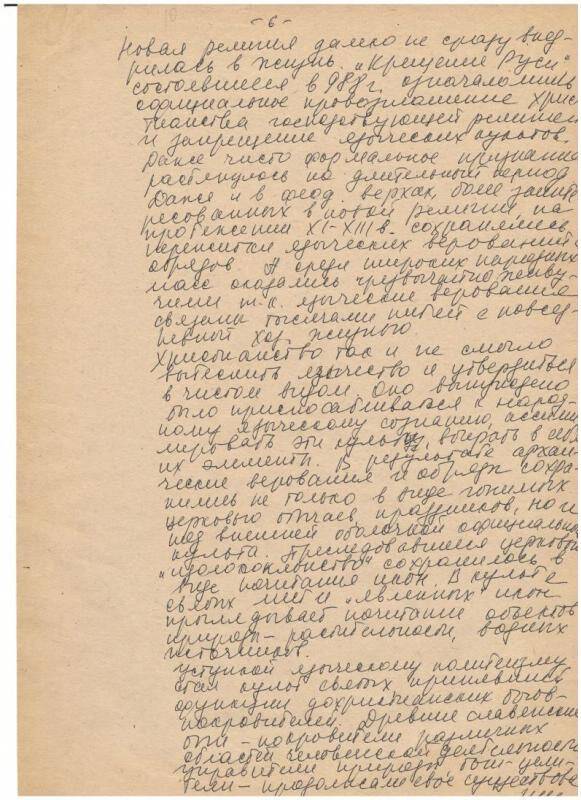 -6-
Новая религия далеко не сразу внед-
рилась в жизнь. „Крещение Руси"
состоявшееся в 988 г. означало лишь
официальное провозглашение хрис-
тианства господствующей религией
и запрещение языческих культов.
Даже чисто формальное признание
растянулось на длительный период
Даже и в феод. верхах, более заинте-
ресованных в новой религии, на
протяжении XI-XIII в. сохранялись
пережитки языческих верований,
обрядов. А среди широких народных
масс оказались чрезвычайно живу-
чими т.к. языческие верования
связаны тысячами нитей с повсед-
невный хоз. жизнью.
Христианство так и не смогло
вытеснить язычество и утвердиться
в чистом виде. Оно вынуждено
было приспосабливаться к народ-
ному языческому сознанию, ассими-
мировать эти культы, вбирать в себя
их элементы. В результате архаи-
ческие верования и обряды сохра-
нились не только в виде гонимых
церковью обычаев, праздников, но и
под внешней оболочкой официального
культа. Преследовавшееся церковью
„идолопоклонство" сохранилось в
виде почитания икон. В культе
святых мест и „явленных" икон
проглядывает почитание объектов
природы - растительности, водных
источников.
Уступкой языческому политеизму
стал культ святых принявших
функции дохристианских богов-
покровителей. Древние славянские
боги - покровители различных
областей человеческой деятельности
управители природы боги-цели-
тели - продолжали свое существова